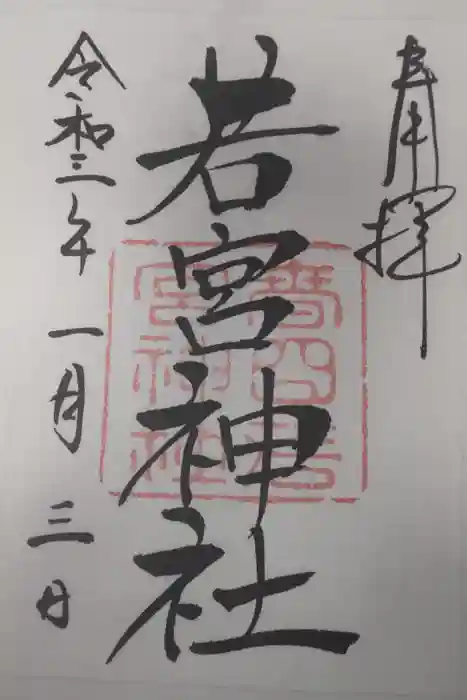 奉拝
若宮神社
令和三年 一月 三日